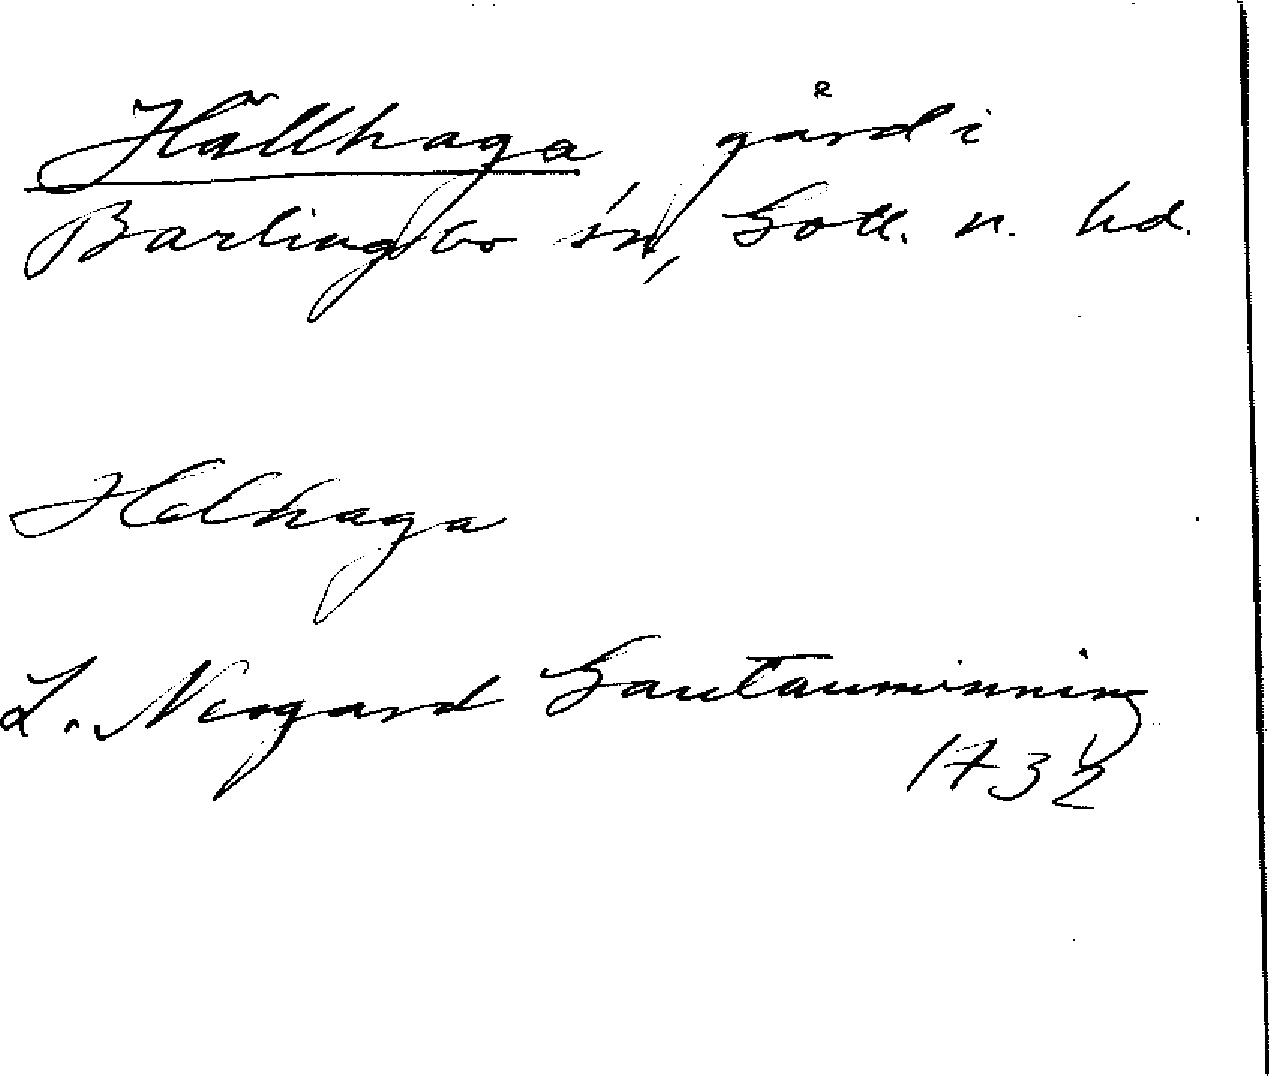 Hällhaga gård i
Barlingbo sn, Gotl. n. hd.
Helhaga
L. Neogard Gautauminning
1732